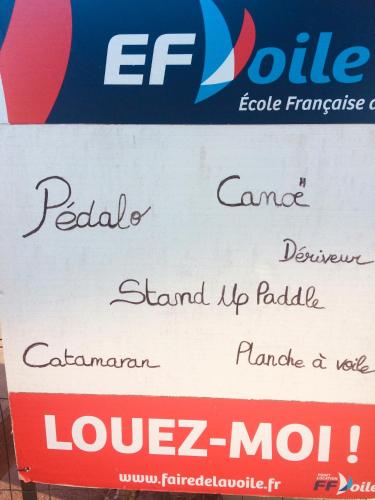 EFVoile
École Française d
Pédalo
Canoë
Dériveur
Stand Up Paddle
Catamaran
Planche à voile
LOUEZ-MOI !
www.fairedelavoile.fr
POINT LOCATION
FFVoile